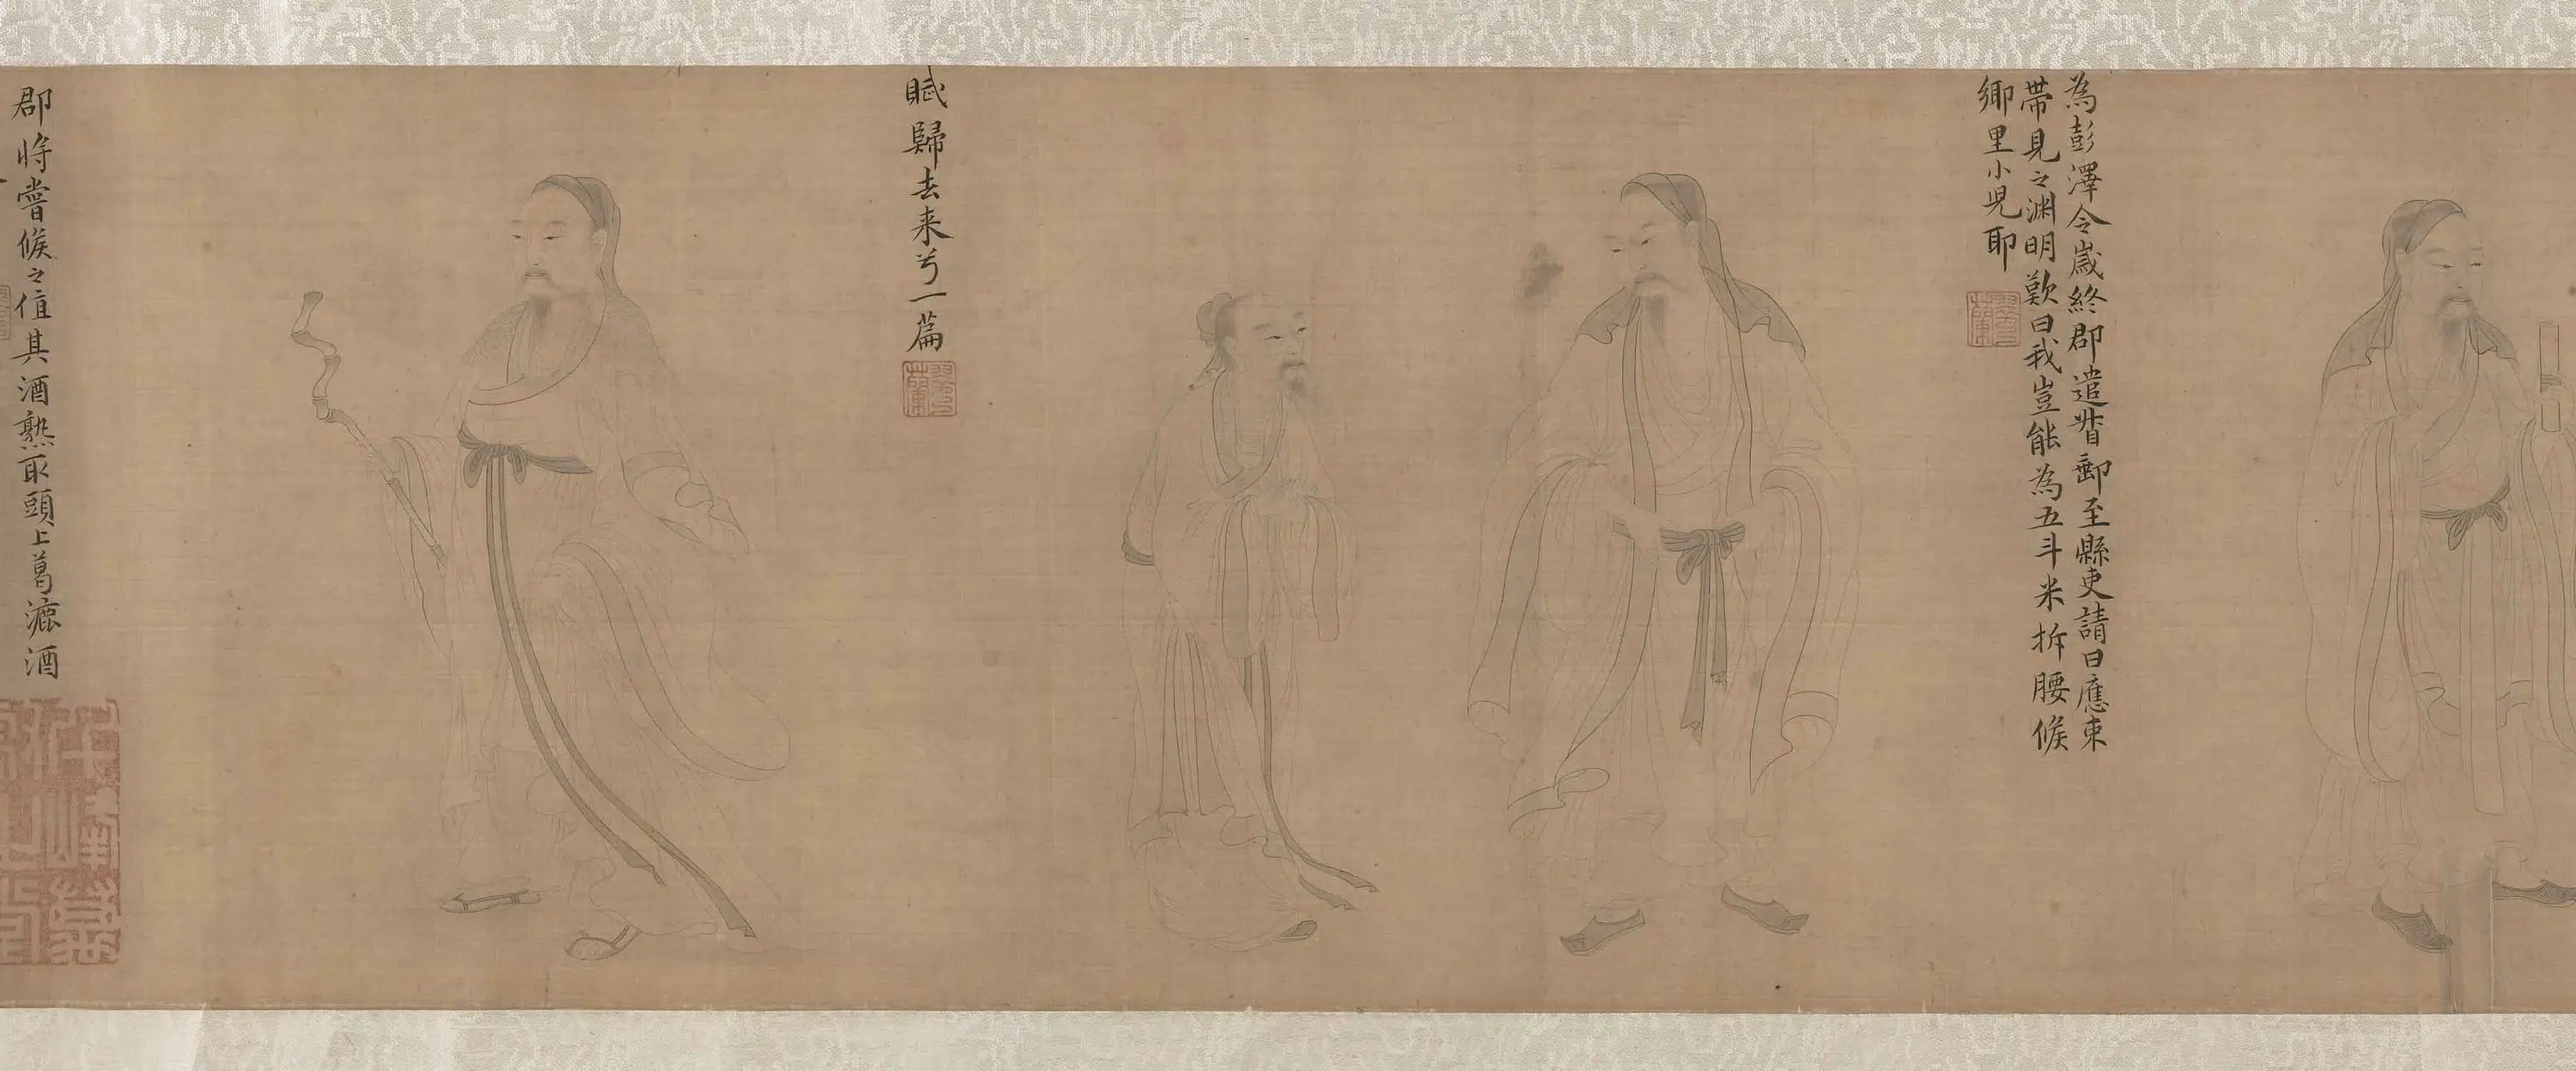 為彭澤令歲終郡遣督郵至縣吏請曰應束
帶見之渊明歎曰我豈能為五斗米折腰候
鄉里小児耶
賦歸去来兮一篇
郡將嘗候之值其酒熟取頭上葛漉酒